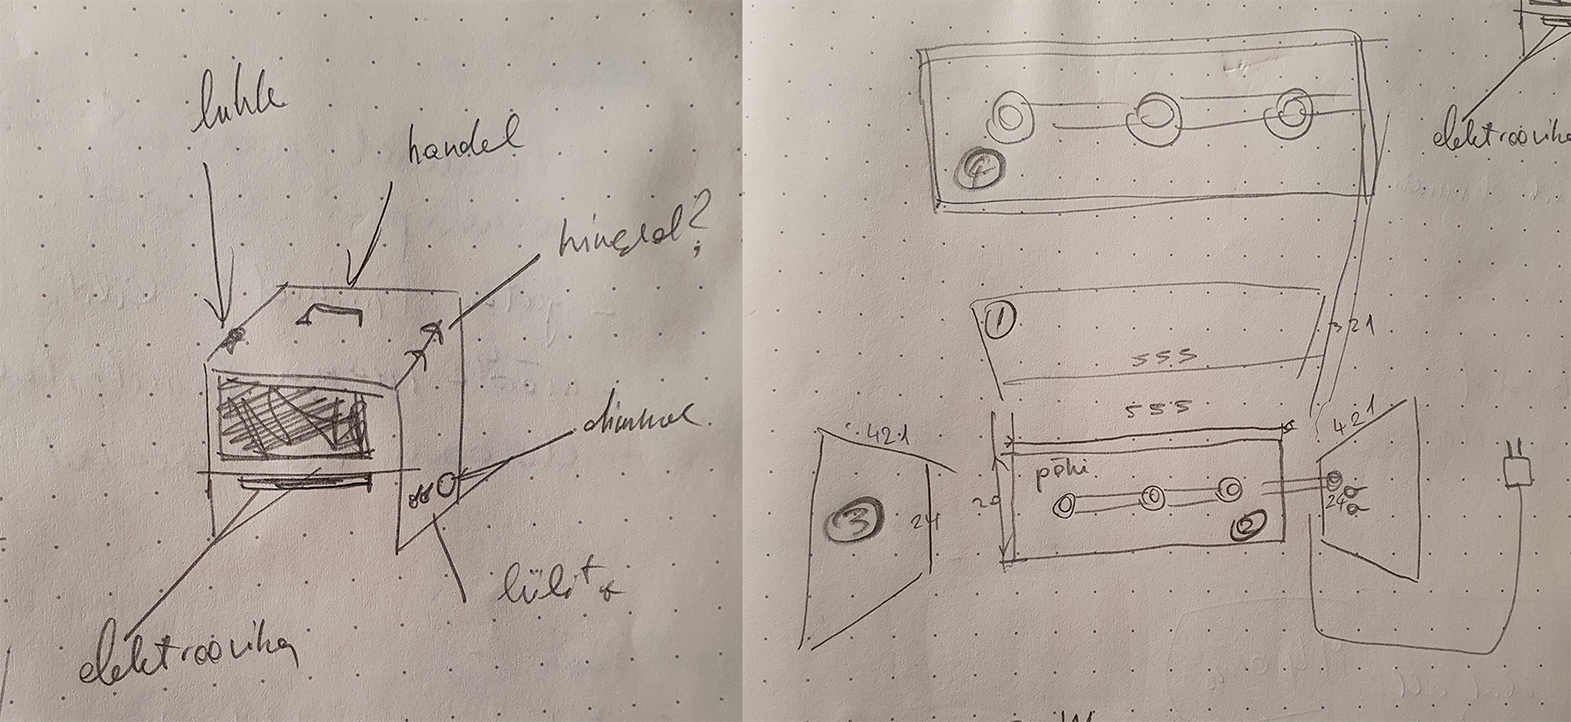 luhk
handel
hinged?
dimmer
lüliti
elektroonika
4
elektroonika
1
321
555
555
421
421
põhi
20
3
24
2
24